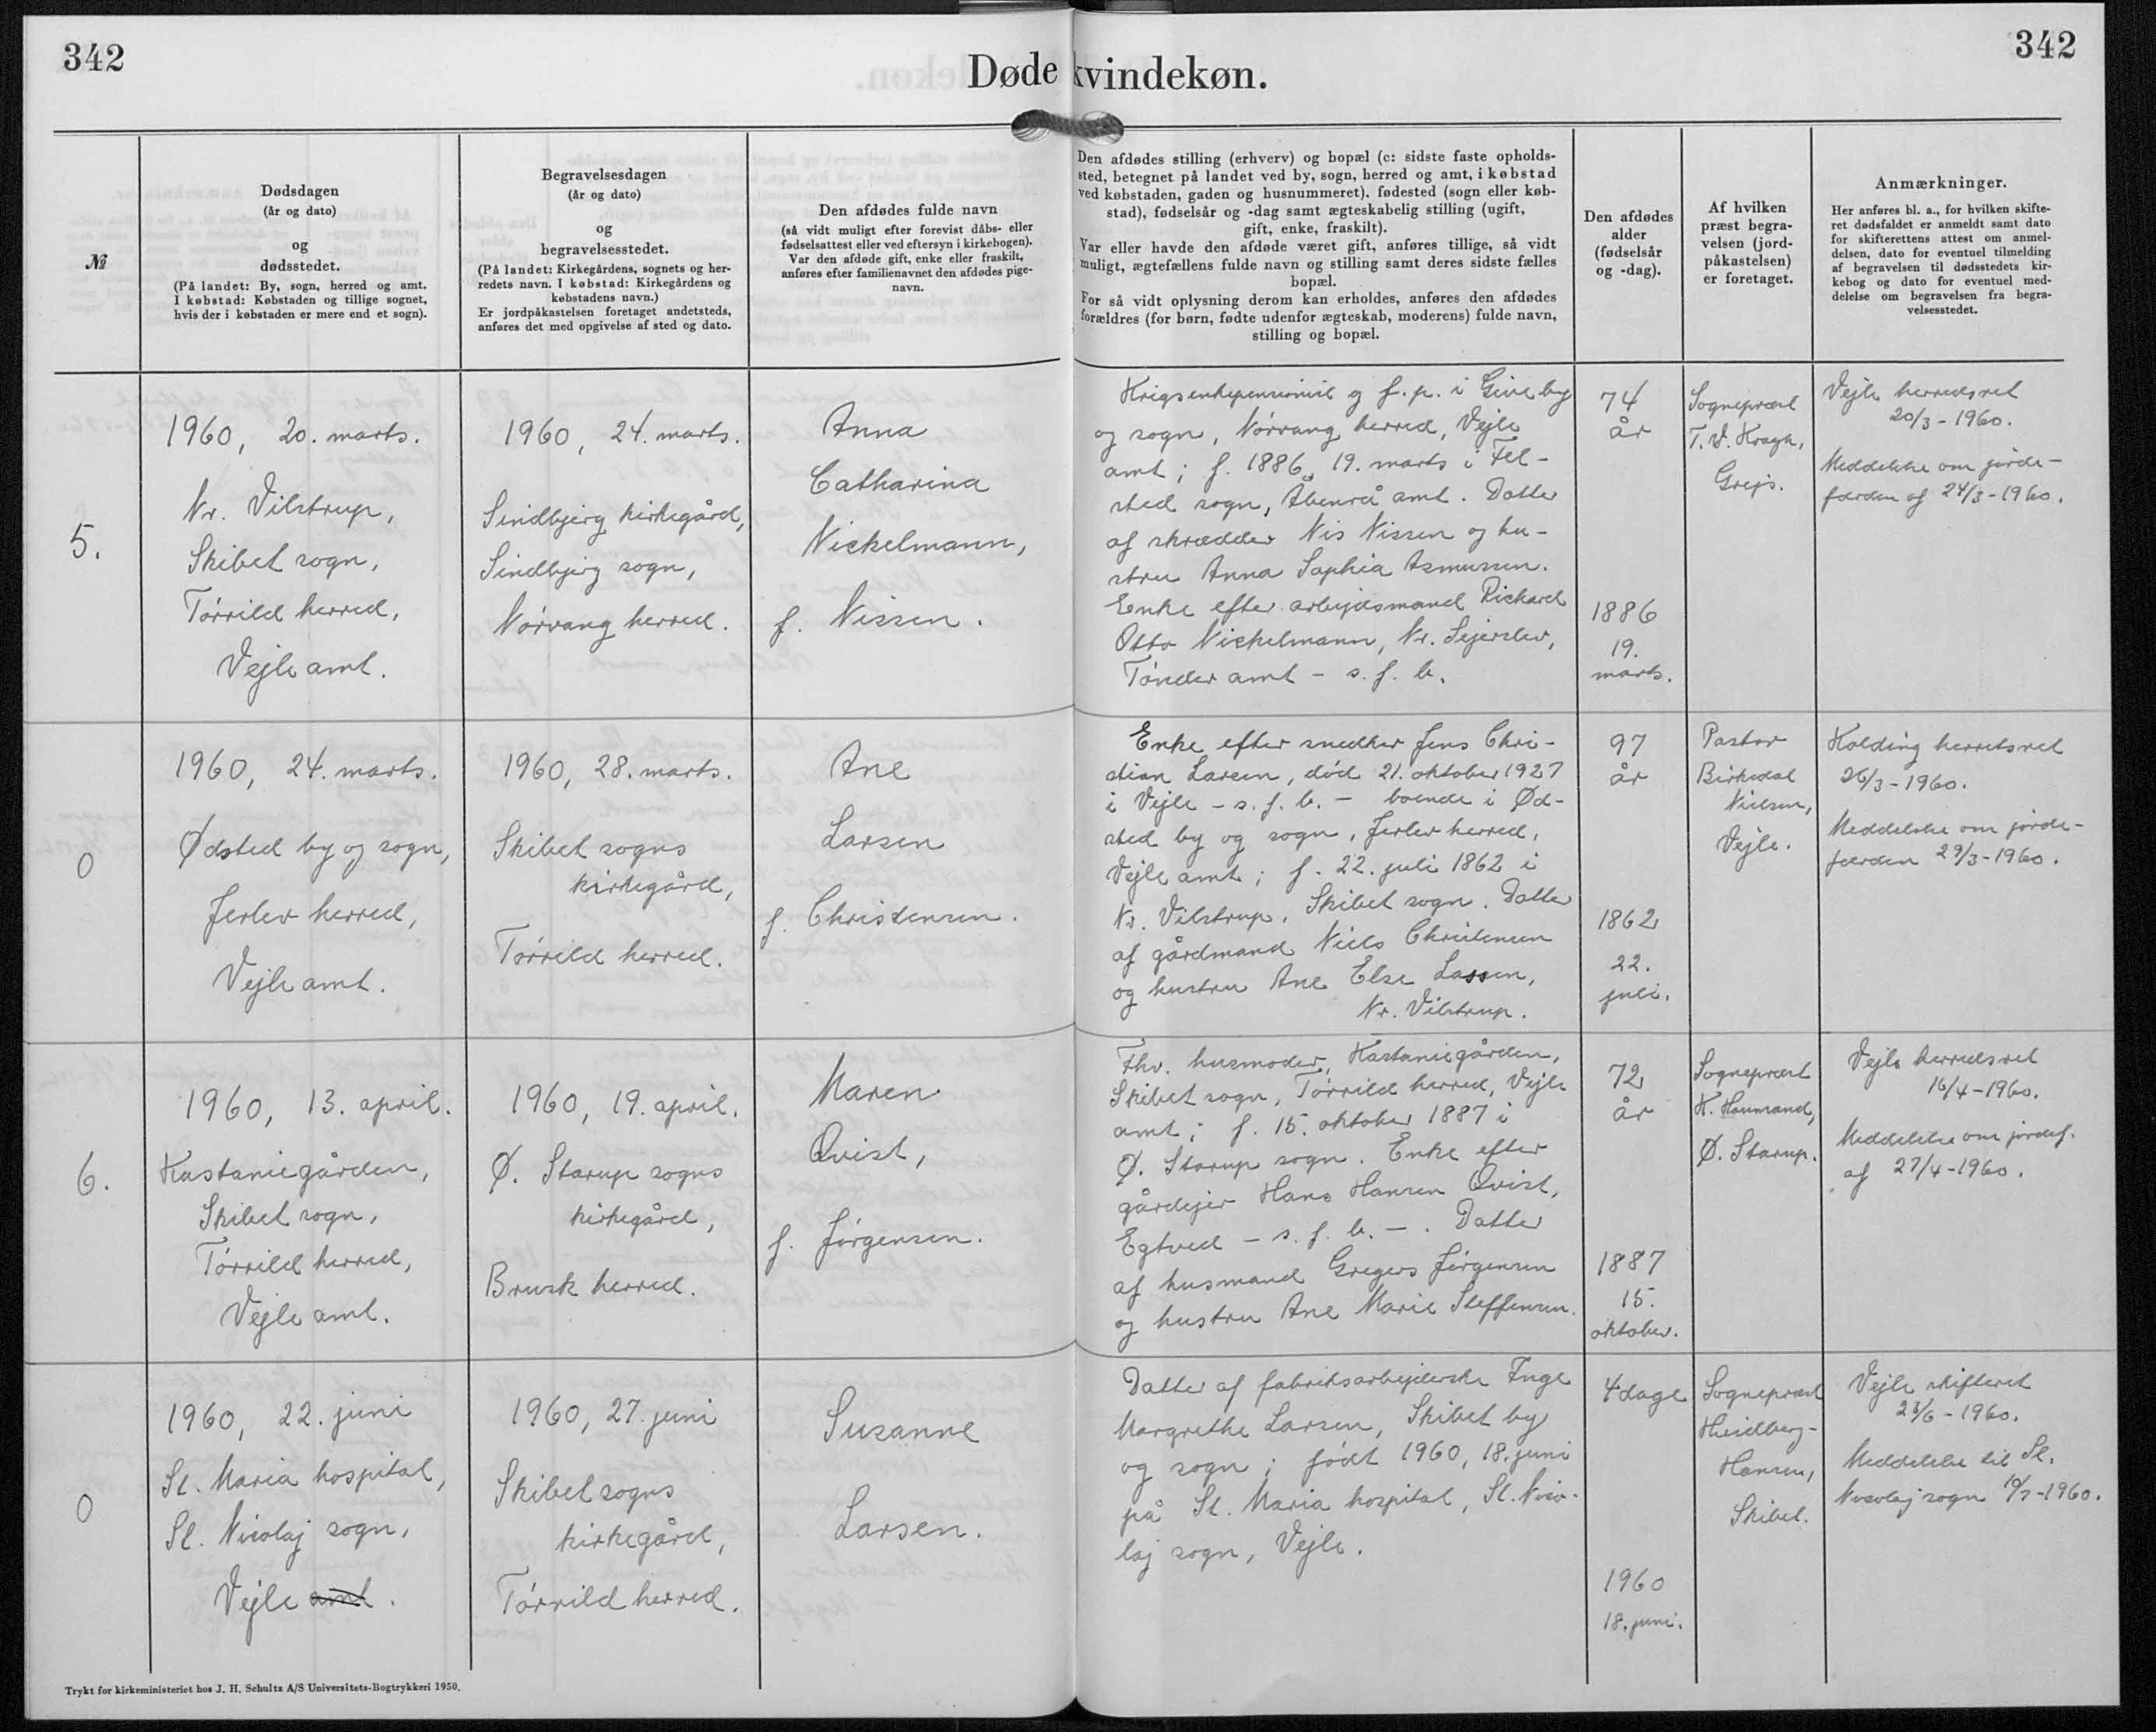 342
Døde kvindekøn.
342
№
Dødsdagen
(år og dato)
og
dødsstedet.
(På landet: By, sogn, herred og amt.
I købstad: Købstaden og tillige sognet,
hvis der i købstaden er mere end et sogn).
Begravelsesdagen
(år og dato)
og
begravelsesstedet.
(På landet: Kirkegårdens, sognets og her-
redets navn. I købstad: Kirkegårdens og
købstadens navn.)
Er jordpåkastelsen foretaget andetsteds,
anføres det med opgivelse af sted og dato.
Den afdødes fulde navn
(så vidt muligt efter forevist dåbs- eller
fødselsattest eller ved eftersyn i kirkebogen).
Var den afdøde gift, enke eller fraskilt,
anføres efter familienavnet den afdødes pige-
navn.
Den afdødes stilling (erhverv) og bopæl (c: sidste faste opholds-
sted, betegnet på landet ved by, sogn, herred og amt, i købstad
ved købstaden, gaden og husnummeret). fødested (sogn eller køb-
stad), fødselsår og -dag samt ægteskabelig stilling (ugift,
gift, enke, fraskilt).
Var eller havde den afdøde været gift, anføres tillige, så vidt
muligt, ægtefællens fulde navn og stilling samt deres sidste fælles
bopæl.
For så vidt oplysning derom kan erholdes, anføres den afdødes
forældres (for børn, fødte udenfor ægteskab, moderens) fulde navn,
stilling og bopæl.
Den afdødes
alder
(fødselsår
og -dag).
Af hvilken
præst begra-
velsen (jord-
påkastelsen)
er foretaget.
Anmærkninger.
Her anføres bl. a., for hvilken skifte-
ret dødsfaldet er anmeldt samt dato
for skifterettens attest om anmel-
delsen, dato for eventuel tilmelding
af begravelsen til dødsstedets kir-
kebog og dato for eventuel med-
delelse om begravelsen fra begra-
velsesstedet.
5.
1960, 20. marts.
Nr. Vilstrup,
Skibet sogn,
Tørrild herred,
Vejle amt.
1960, 24. marts.
Sindbjerg kirkegård,
Sindbjerg sogn,
Nørvang herred.
Anna
Catharina
Nickelmann,
f. Nissen.
Krigsenkepensionist og f. p. i Give by
og sogn, Nørvang herred, Vejle
amt; f. 1886, 19. marts i Fel-
sted sogn, Åbenrå amt. Datter
af skrædder Nis Nissen og hu-
stru Anna Sophia Asmussen.
Enke efter arbejdsmand Richard
Otto Nickelmann, Nr. Sejerslev,
Tønder amt - s. f. b.
74
år
1886
19.
marts.
Sognepræst
T. V. Kragh,
Grejs.
Vejle herredsret
20/3 - 1960.
Meddelelse om jorde-
færden af 24/3 - 1960.
0
1960, 24. marts.
Ødsted by og sogn,
Jerlev herred,
Vejle amt.
1960, 28. marts.
Skibet sogns
kirkegård,
Tørrild herred.
Ane
Larsen
f. Christensen.
Enke efter snedker Jens Chri-
stian Larsen, død 21. oktober 1927
i Vejle - s. f. b. - boende i Ød-
sted by og sogn, Jerlev herred,
Vejle amt; f. 22. juli 1862 i
Nr. Vilstrup, Skibet sogn. Datter
af gårdmand Niels Christensen
og hustru Ane Else Lassen,
Nr. Vilstrup.
97
år
1862
22.
juli.
Pastor
Birkedal
Nielsen,
Vejle.
Kolding herretsret
26/3 - 1960.
Meddelelse om jorde-
færden 29/3 - 1960.
6.
1960, 13. april.
Kastaniegården,
Skibet sogn,
Tørrild herred,
Vejle amt.
1960, 19. april.
Ø. Starup sogns
kirkegård,
Brusk herred.
Maren
Qvist,
f. Jørgensen.
Fhv. husmoder, Kastaniegården,
Skibet sogn, Tørrild herred, Vejle
amt; f. 15. oktober 1887 i
Ø. Starup sogn. Enke efter
gårdejer Hans Hansen Qvist,
Egtved - s. f. b. - . Datter
af husmand Gregers Jørgensen
og hustru Ane Marie Steffensen.
72
år
1887
15.
oktober.
Sognepræst
Ø. Starup.
Vejle herredsret
16/4 - 1960.
Meddelelse om jordef.
af 27/4 - 1960.
0
1960, 22. juni
St. Maria hospital,
St. Nicolaj sogn,
Vejle amt.
1960, 27. juni
Skibet sogns
kirkegård,
Tørrild herred.
Susanne
Larsen.
Datter af fabriksarbejderske Inge
Margrethe Larsen, Skibet by
og sogn; født 1960, 18. juni
på St. Maria hospital, St. Nico-
laj sogn, Vejle.
4 dage
1960
18. juni.
Sognepræst
Heidberg-
Hansen,
Skibet.
Vejle skifteret
23/6 - 1960.
Meddelelse til St.
Nicolaj sogn 10/7 - 1960.
Trykt for kirkeministeriet hos J. H. Schultz A/S Universitets-Bogtrykkeri 1950.